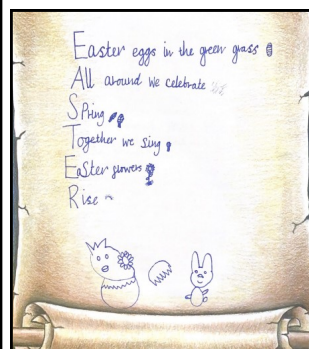 Easter eggs in the green grass
All around we celebrate
Spring
Together we sing
Easter flowers
Rise